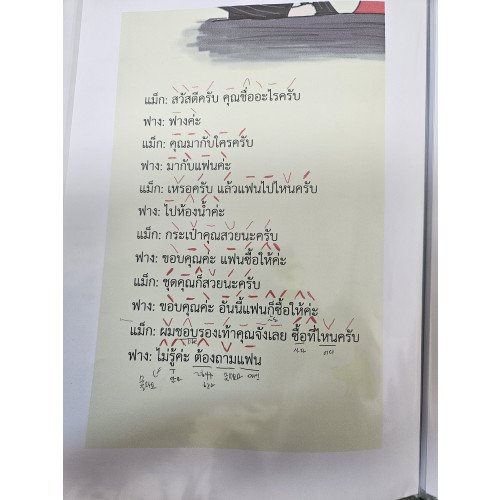 แม็ก: สวัสดีครับ คุณชื่ออะไรครับ
ฟาง: ฟางค่ะ
แม็ก: คุณมากับใครครับ
ฟาง: มากับแฟนค่ะ
แม็ก: เหรอครับ แล้วแฟนไปไหนครับ
ฟาง: ไปห้องน้ำค่ะ
แม็ก: กระเป๋าคุณสวยนะครับ
ฟาง: ขอบคุณค่ะ แฟนซื้อให้ค่ะ
แม็ก: ชุดคุณก็สวยนะครับ
ฟาง: ขอบคุณค่ะ อันนี้แฟนก็ซื้อให้ค่ะ
แม็ก: ผมชอบรองเท้าคุณจังเลย ซื้อที่ไหนครับ
ฟาง: ไม่รู้ค่ะ ต้องถามแฟน